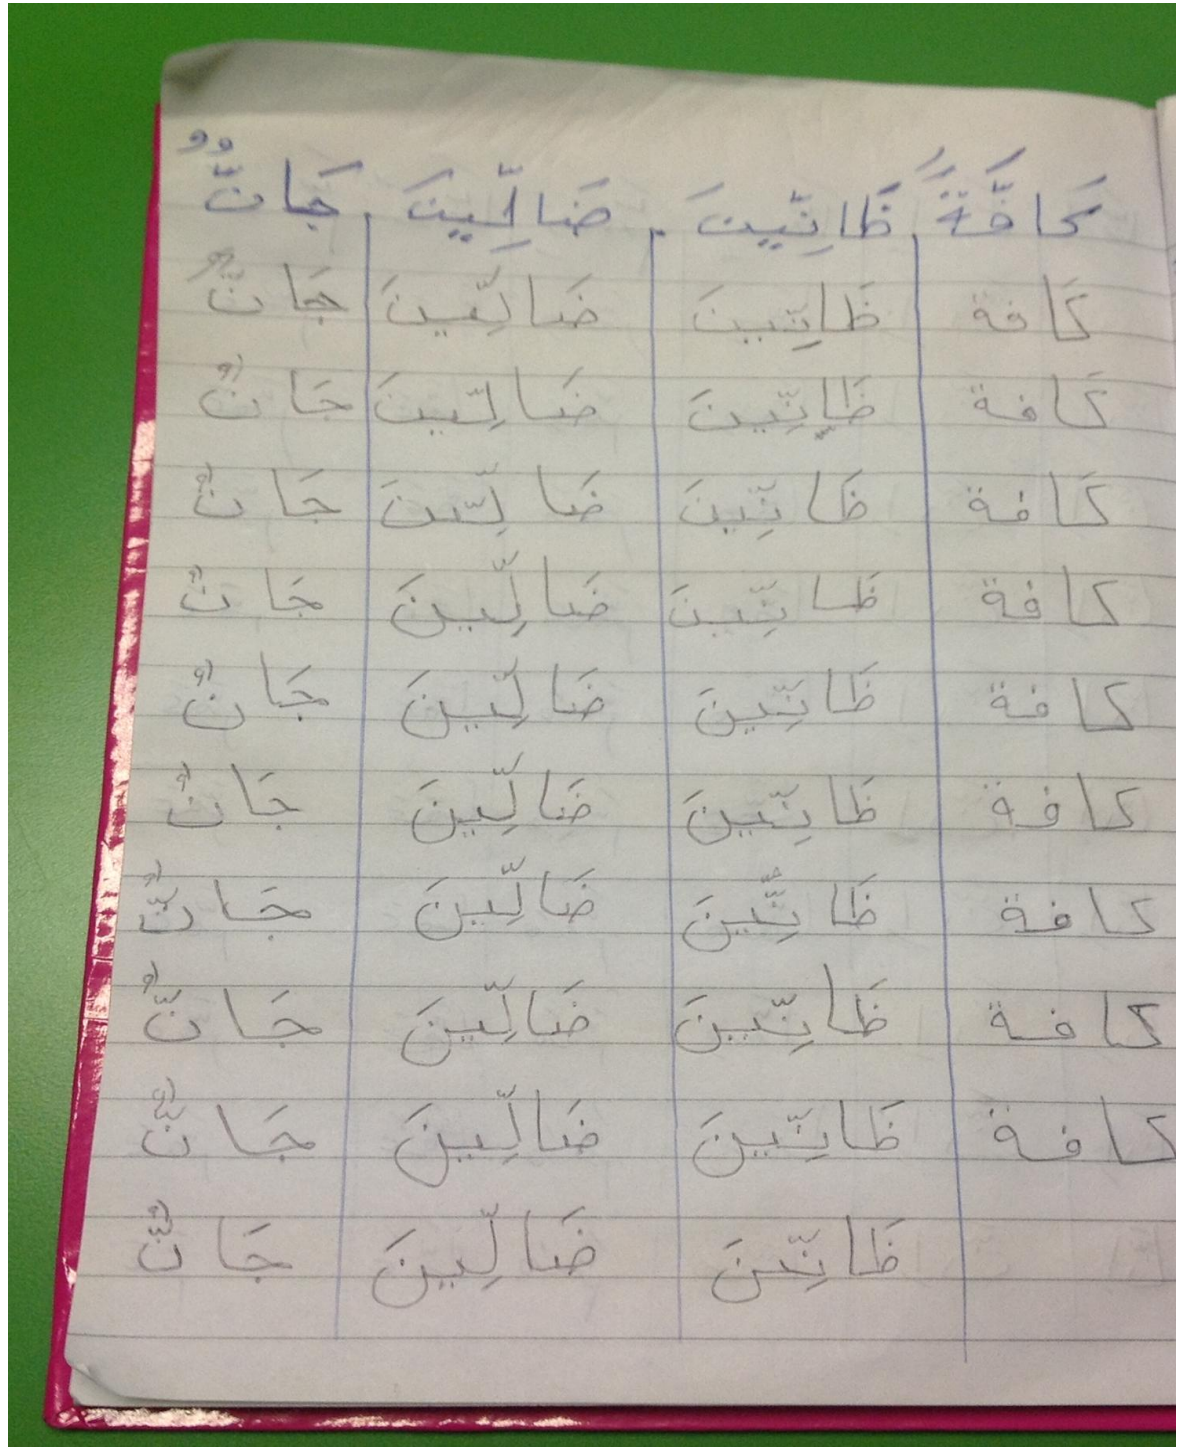 كَافَّةً ظَانِّينَ ضَالِّينَ جَانٌّ
كَافة ظَانِّينَ ضَالِّينَ جَانٌّ
كَافة ظَانِّينَ ضَالِّينَ جَانٌ
كَافة ظَانِّينَ ضَالِّينَ جَانٌ
كافة ظَانِّينَ ضَالِّينَ جَانٌ
كافة ظَانِّينَ ضَالِّينَ جَانٌ
كافة ظَانِّينَ ضَالِّينَ جَانٌ
كافة ظَانِّينَ ضَالِّينَ جَانٌّ
كافة ظَانِّينَ ضَالِّينَ جَانٌّ
كافة ظَانِّينَ ضَالِّينَ جَانٌّ
ظَانِّنَ ضَالِّينَ جَانٌّ